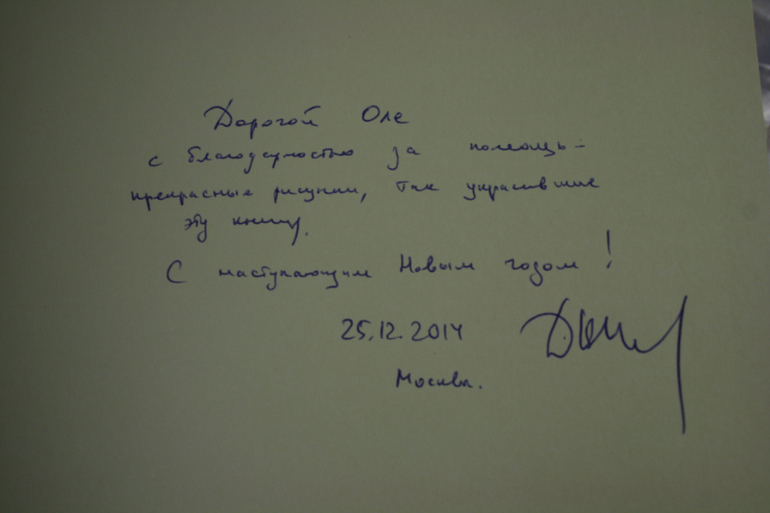 Дорогой Оле
с благодарностью за помощь -
прекрасные рисунки, так украсившие
эту книгу.
С наступающим Новым годом!
25.12.2014
Москва.